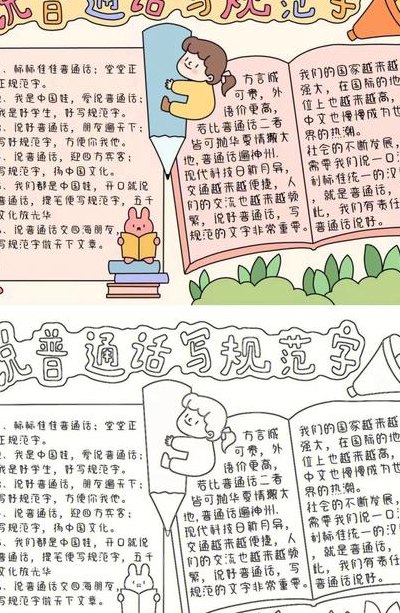 说普通话写规范字
、标标佳佳普通话；堂堂正
正规范字。
、我是中国娃，爱说普通话；
我是好学生，好写规范字。
、说好普通话，朋友遍天下；
写好规范字，方便你我他。
、说普通话，迎四方宾客；
写规范字，扬中国文化。
、我们都是中国娃，开口就说
普通话，提笔便写规范字，五千
文化放光华
、说普通话交四海朋友，
写规范字做天下文章。
方言诚
可贵，外
语价更高，
若比普通话二者
皆可抛华夏情搬大
地，普通话遍神州.
现代科技日新月异，
交通越来越便捷，人
们的交流也越来越频
繁，说好普通话，写
规范的文字非常重要。
我们的国家越来越
强大，在国际的地
位上也越来越高，
中文也慢慢成为世
界的热潮。
社会的不断发展，
需要我们说一口
利标准统一的汉
，就是普通话，
此，我们有责任
普通话说好。
说普通话写规范字
、标标佳佳普通话；堂堂正
正规范字。
、我是中国娃，爱说普通话；
我是好学生，好写规范字。
、说好普通话，朋友遍天下；
写好规范字，方便你我他。
、说普通话，迎四方宾客；
写规范字，扬中国文化。
、我们都是中国娃，开口就说
普通话，提笔便写规范字，五千
文化放光华
、说普通话交四海朋友，
写规范字做天下文章。
方言诚
可贵，外
语价更高，
若比普通话二者
皆可抛华夏情搬大
地，普通话遍神州.
现代科技日新月异，
交通越来越便捷，人
们的交流也越来越频
繁，说好普通话，写
规范的文字非常重要。
我们的国家越来越
强大，在国际的地
位上也越来越高，
中文也慢慢成为世
界的热潮。
社会的不断发展，
需要我们说一口
利标准统一的汉
，就是普通话，
此，我们有责任
普通话说好。